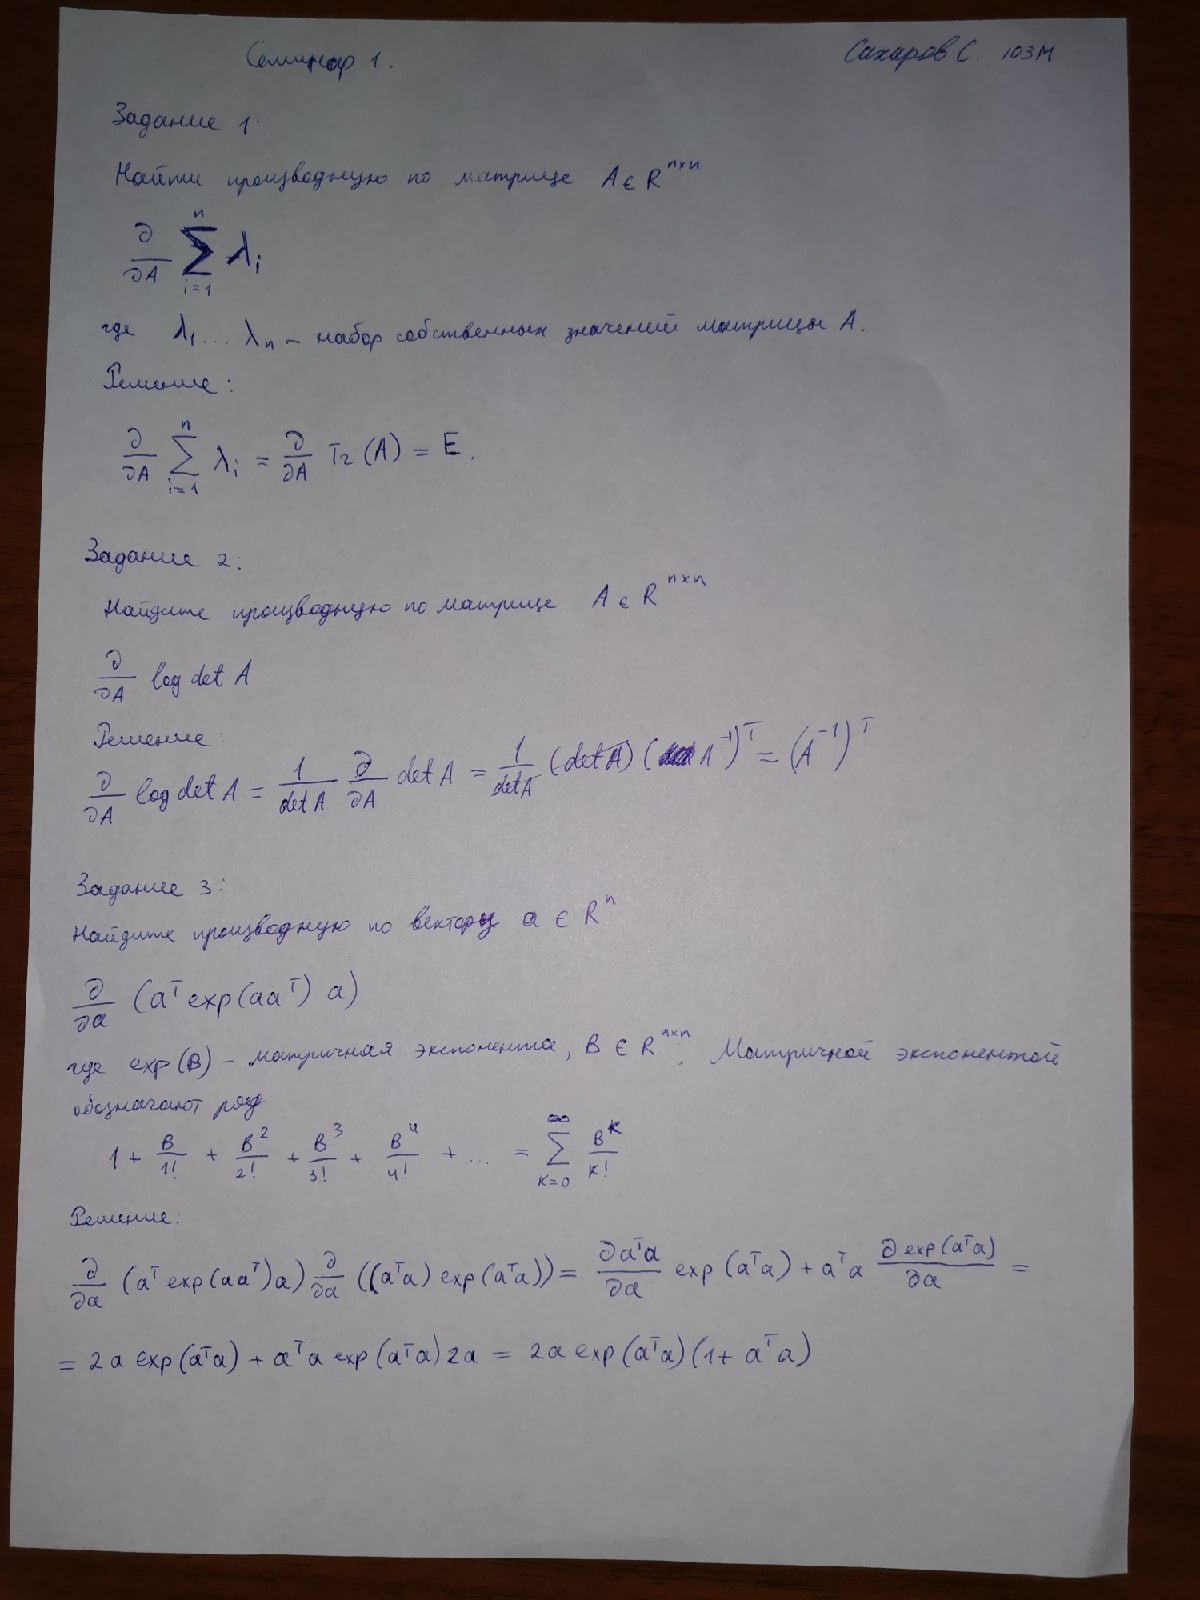 Семинар 1.
Сахаров С. 103М
Задание 1.
Найти производную по матрице A ∈ R^{n×n}
∂/∂A ∑_{i=1}^{n} λ_i
где λ_1 ... λ_n – набор собственных значений матрицы A.
Решение:
∂/∂A ∑_{i=1}^{n} λ_i = ∂/∂A Tr(A) = E.
Задание 2:
Найдите производную по матрице A ∈ R^{n×n}
∂/∂A log det A
Решение:
∂/∂A log det A = 1/det A ∂/∂A det A = 1/det A (det A) (A^{-1})^T = (A^{-1})^T
Задание 3:
Найдите производную по вектору a ∈ R^n
∂/∂a (a^T exp(aa^T) a)
где exp(B) – матричная экспонента, B ∈ R^{n×n}. Матричной экспонентой
обозначают ряд
1 + B/1! + B^2/2! + B^3/3! + B^4/4! + .... = ∑_{k=0}^{∞} B^k/k!
Решение:
∂/∂a (a^T exp(aa^T)a) ∂/∂a ((a^T a) exp(a^T a)) = ∂a^T a/∂a exp(a^T a) + a^T a ∂exp(a^T a)/∂a =
= 2a exp(a^T a) + a^T a exp(a^T a) 2a = 2a exp(a^T a)(1 + a^T a)